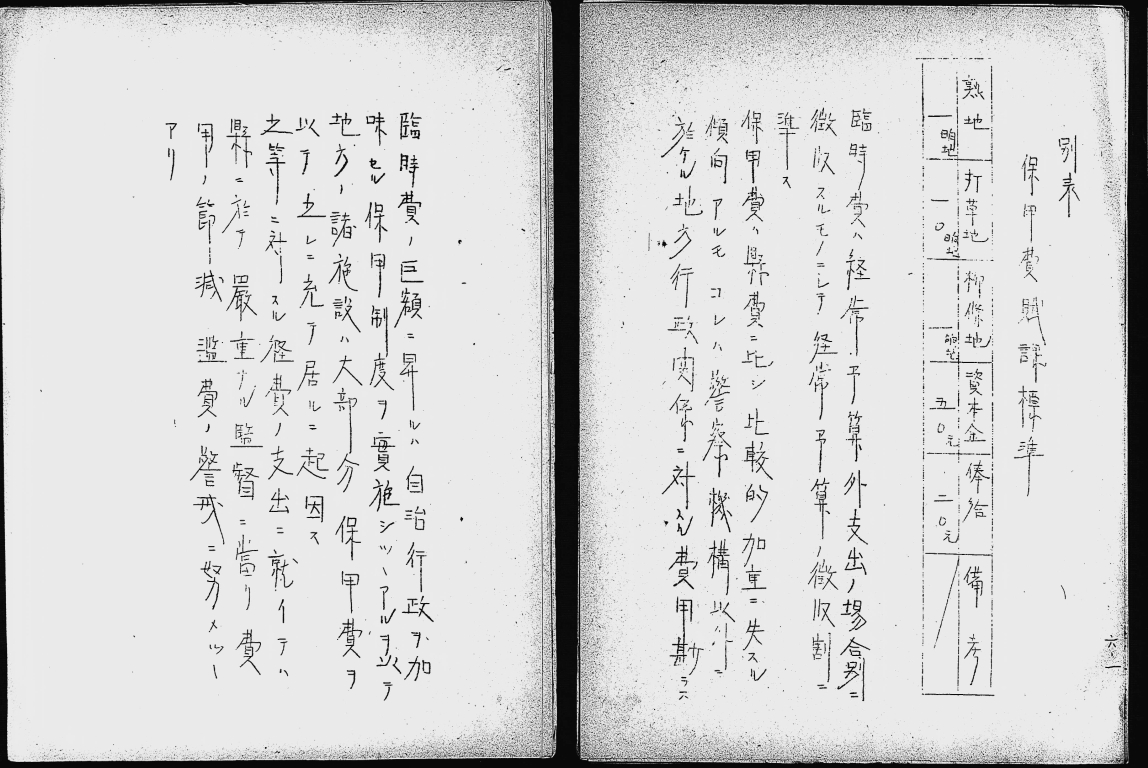 別表
保甲費賦課標準
熟地 打草地 柳條地 資本金 俸給 備考
一晌地 一〇晌地 一晌地 五〇元 二〇元
臨時費ハ経常予算外支出ノ場合別ニ
徴収スルモノニシテ経常予算ノ徴収割ニ
準ス
保甲費ハ縣費ニ比シ比較的加重ニ失スル
傾向アルモコレハ警察機構以外ニ
於ケル地方行政関係ニ対スル費用尠ラス
六〇一
臨時費ノ巨額ニ昇ルハ自治行政ヲ加
味セル保甲制度ヲ實施シツヽアルヲ以テ
地方ノ諸施設ハ大部分保甲費ヲ
以テ之レニ充テ居ルニ起因ス
之等ニ対スル経費ノ支出ニ就イテハ
縣ニ於テ嚴重ナル監督ニ當リ費
用ノ節減濫費ノ警戒ニ努メツヽ
アリ